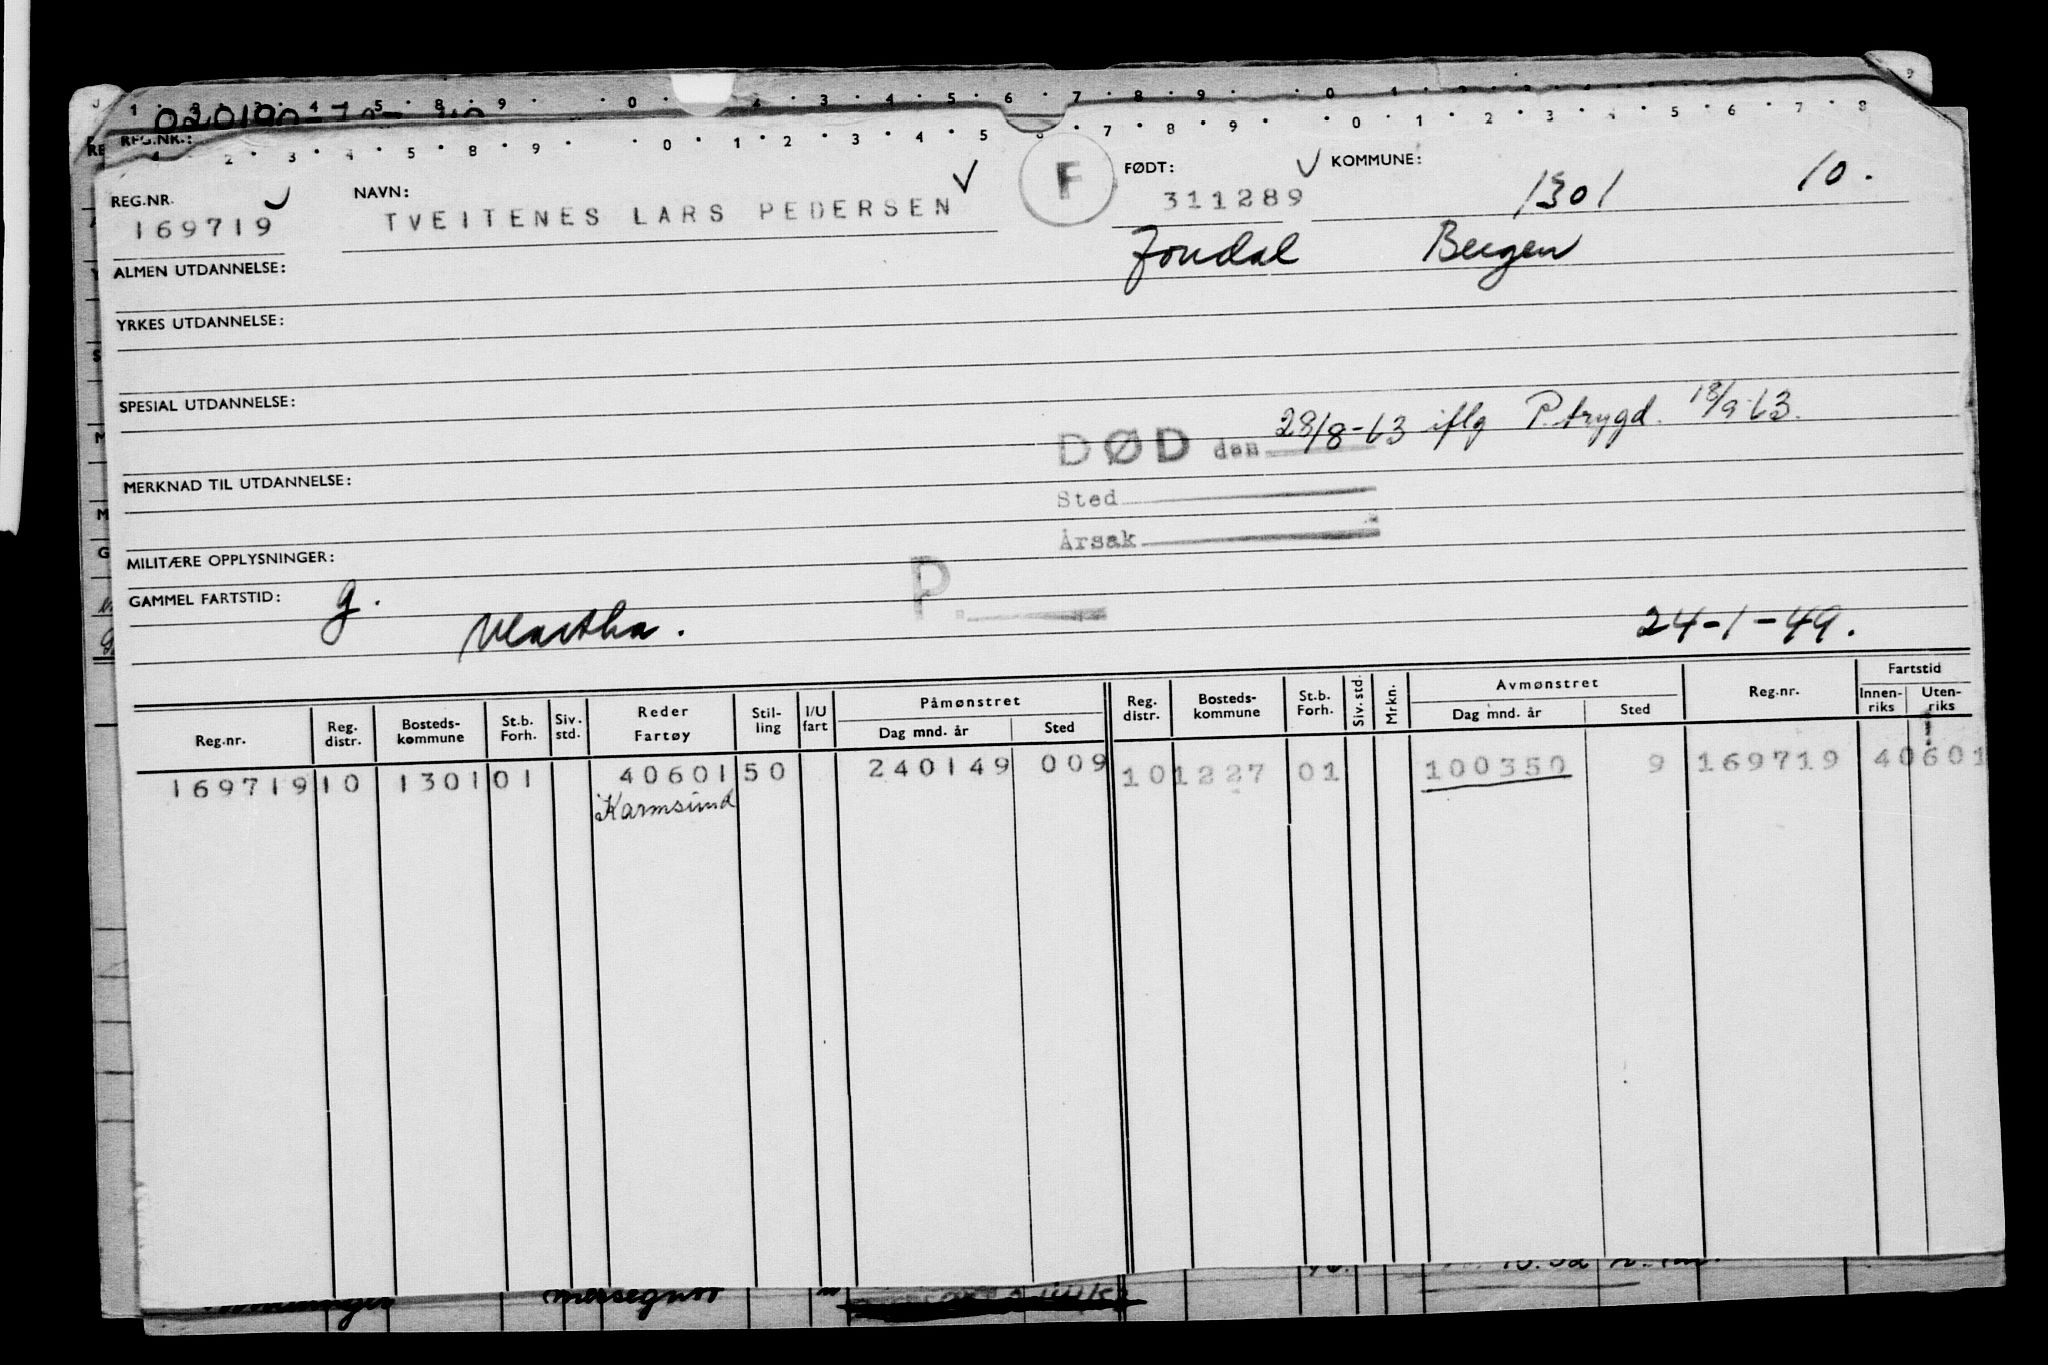 REG.NR.
169719
NAVN:
TVEITENES LARS PEDERSEN
F
FØDT:
311289
KOMMUNE:
1301 10.
Jondal Bergen
ALMEN UTDANNELSE:
YRKES UTDANNELSE:
SPESIAL UTDANNELSE:
DØD den 28/8-63 iflg P.trygd. 18/9-63.
MERKNAD TIL UTDANNELSE:
Sted
Årsak
MILITÆRE OPPLYSNINGER:
P.
GAMMEL FARTSTID: g.
Martha. 24-1-49.
Reg.nr. Reg. distr. Bosteds-kommune St.b. Forh. Siv. std. Reder Fartøy Stil-ling I/U fart Påmønstret Dag mnd. år Sted Reg. distr. Bosteds-kommune St.b. Forh. Siv. std. Mrkn. Avmønstret Dag mnd. år Sted Reg.nr. Fartstid Innen-riks Uten-riks
169719 10 1301 01 40601 50 240149 009 10 1227 01 100350 9 169719 40601
Karmsund